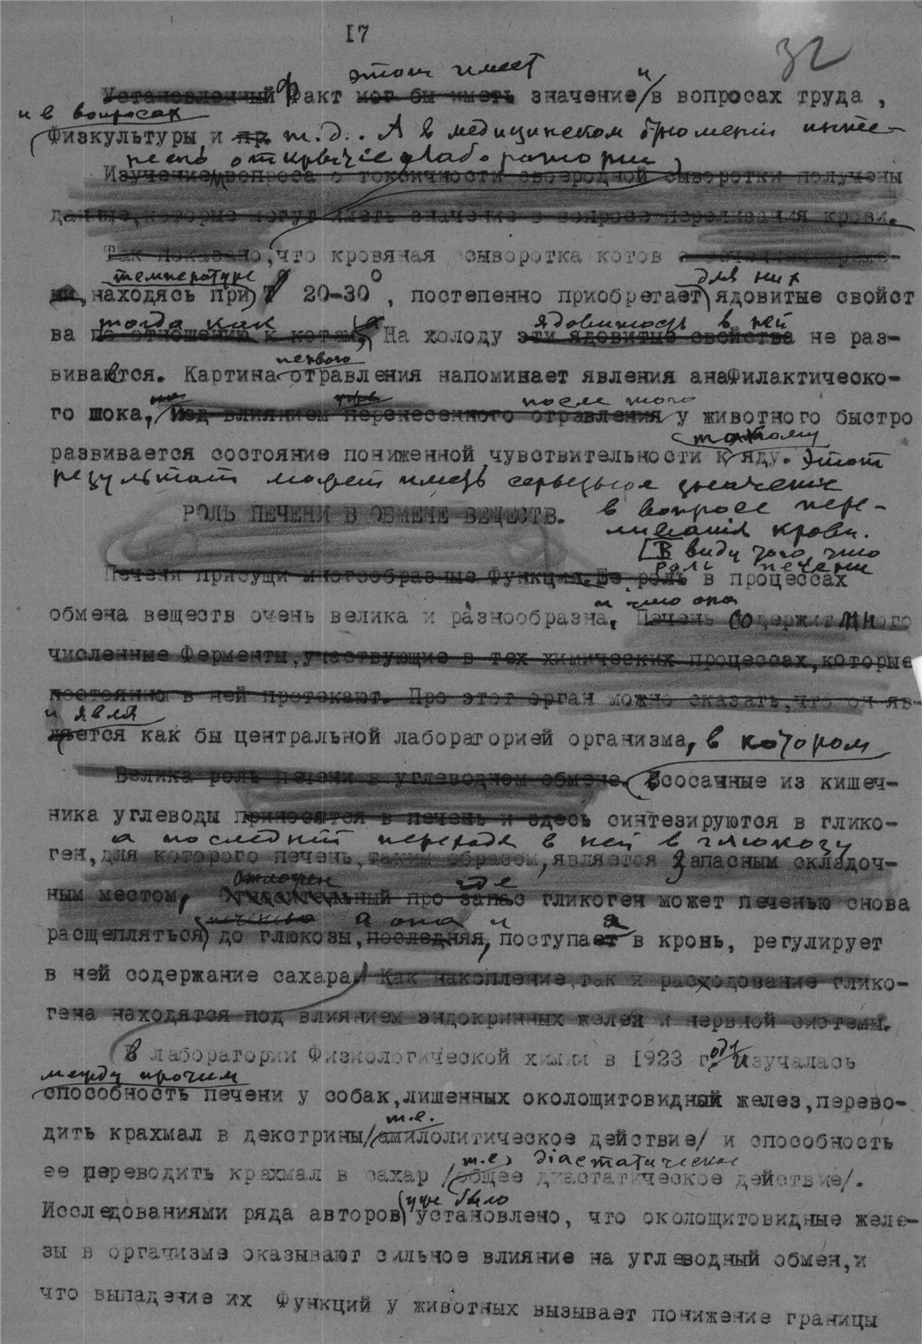 17
32
этот имеет
Установленный Факт мог бы иметь значение и в вопросах труда,
и в вопросах
Физкультуры и пр. т.д.. А в медицинском
открытие лаборатории
Изучением вопроса о токсичности своеродной сыворотки получены
данные, которые могут иметь значение в вопросе переливания крови.
Так показано, что кровяная сыворотка котов с течением време-
температуре для них
ни, находясь при Т 20-30°, постепенно приобретает ядовитые свойст
тогда как ядовитость в ней
ва по отношению к котам, а На холоду эти ядовитые свойства не раз-
первого
виваются. Картина отравления напоминает явления анаФилактическо-
после того
го шока, Под влиянием перенесенного отравления у животного быстро
такому
развивается состояние пониженной чувствительности к яду. Этот
результат может иметь серьезное значение
РОЛЬ ПЕЧЕНИ В ОБМЕНЕ ВЕЩЕСТВ. в вопросе пере-
ливания крови.
[В виду того, что
роль печени
Печени присущи многообразные Функции. Ее роль в процессах
и что она
обмена веществ очень велика и разнообразна, Печень содержит много
численные Ферменты, участвующие в тех химических процессах, которые
постоянно в ней протекают. Про этот орган можно сказать, что он яв-
и явля
ляется как бы центральной лабораторией организма, в котором
Велика роль печени в углеводном обмене. Всосанные из кишеч-
ника углеводы приносятся в печень и здесь синтезируются в глико-
а последний переходя в ней в глюкозу
ген, для которого печень, таким образом, является запасным складоч-
отложен где
ным местом, про запас гликоген может печенью снова
а она и а
расщепляться до глюкозы, последняя, поступает в кровь, регулирует
в ней содержание сахара. Как накопление, так и расходование глико-
гена находятся под влиянием эндокринных желез и нервной системы.
В лаборатории Физиологической химии в 1923 году изучалась
между прочим
способность печени у собак, лишенных околощитовидный желез, перево-
т.е.
дить крахмал в декстрины /амилолитическое действие/ и способность
т.е. діастатическое
ее переводить крахмал в сахар /общее диастатическое действие/.
уже было
Исследованиями ряда авторов установлено, что околощитовидные желе-
зы в организме оказывают сильное влияние на углеводный обмен, и
что выпадение их Функций у животных вызывает понижение границы